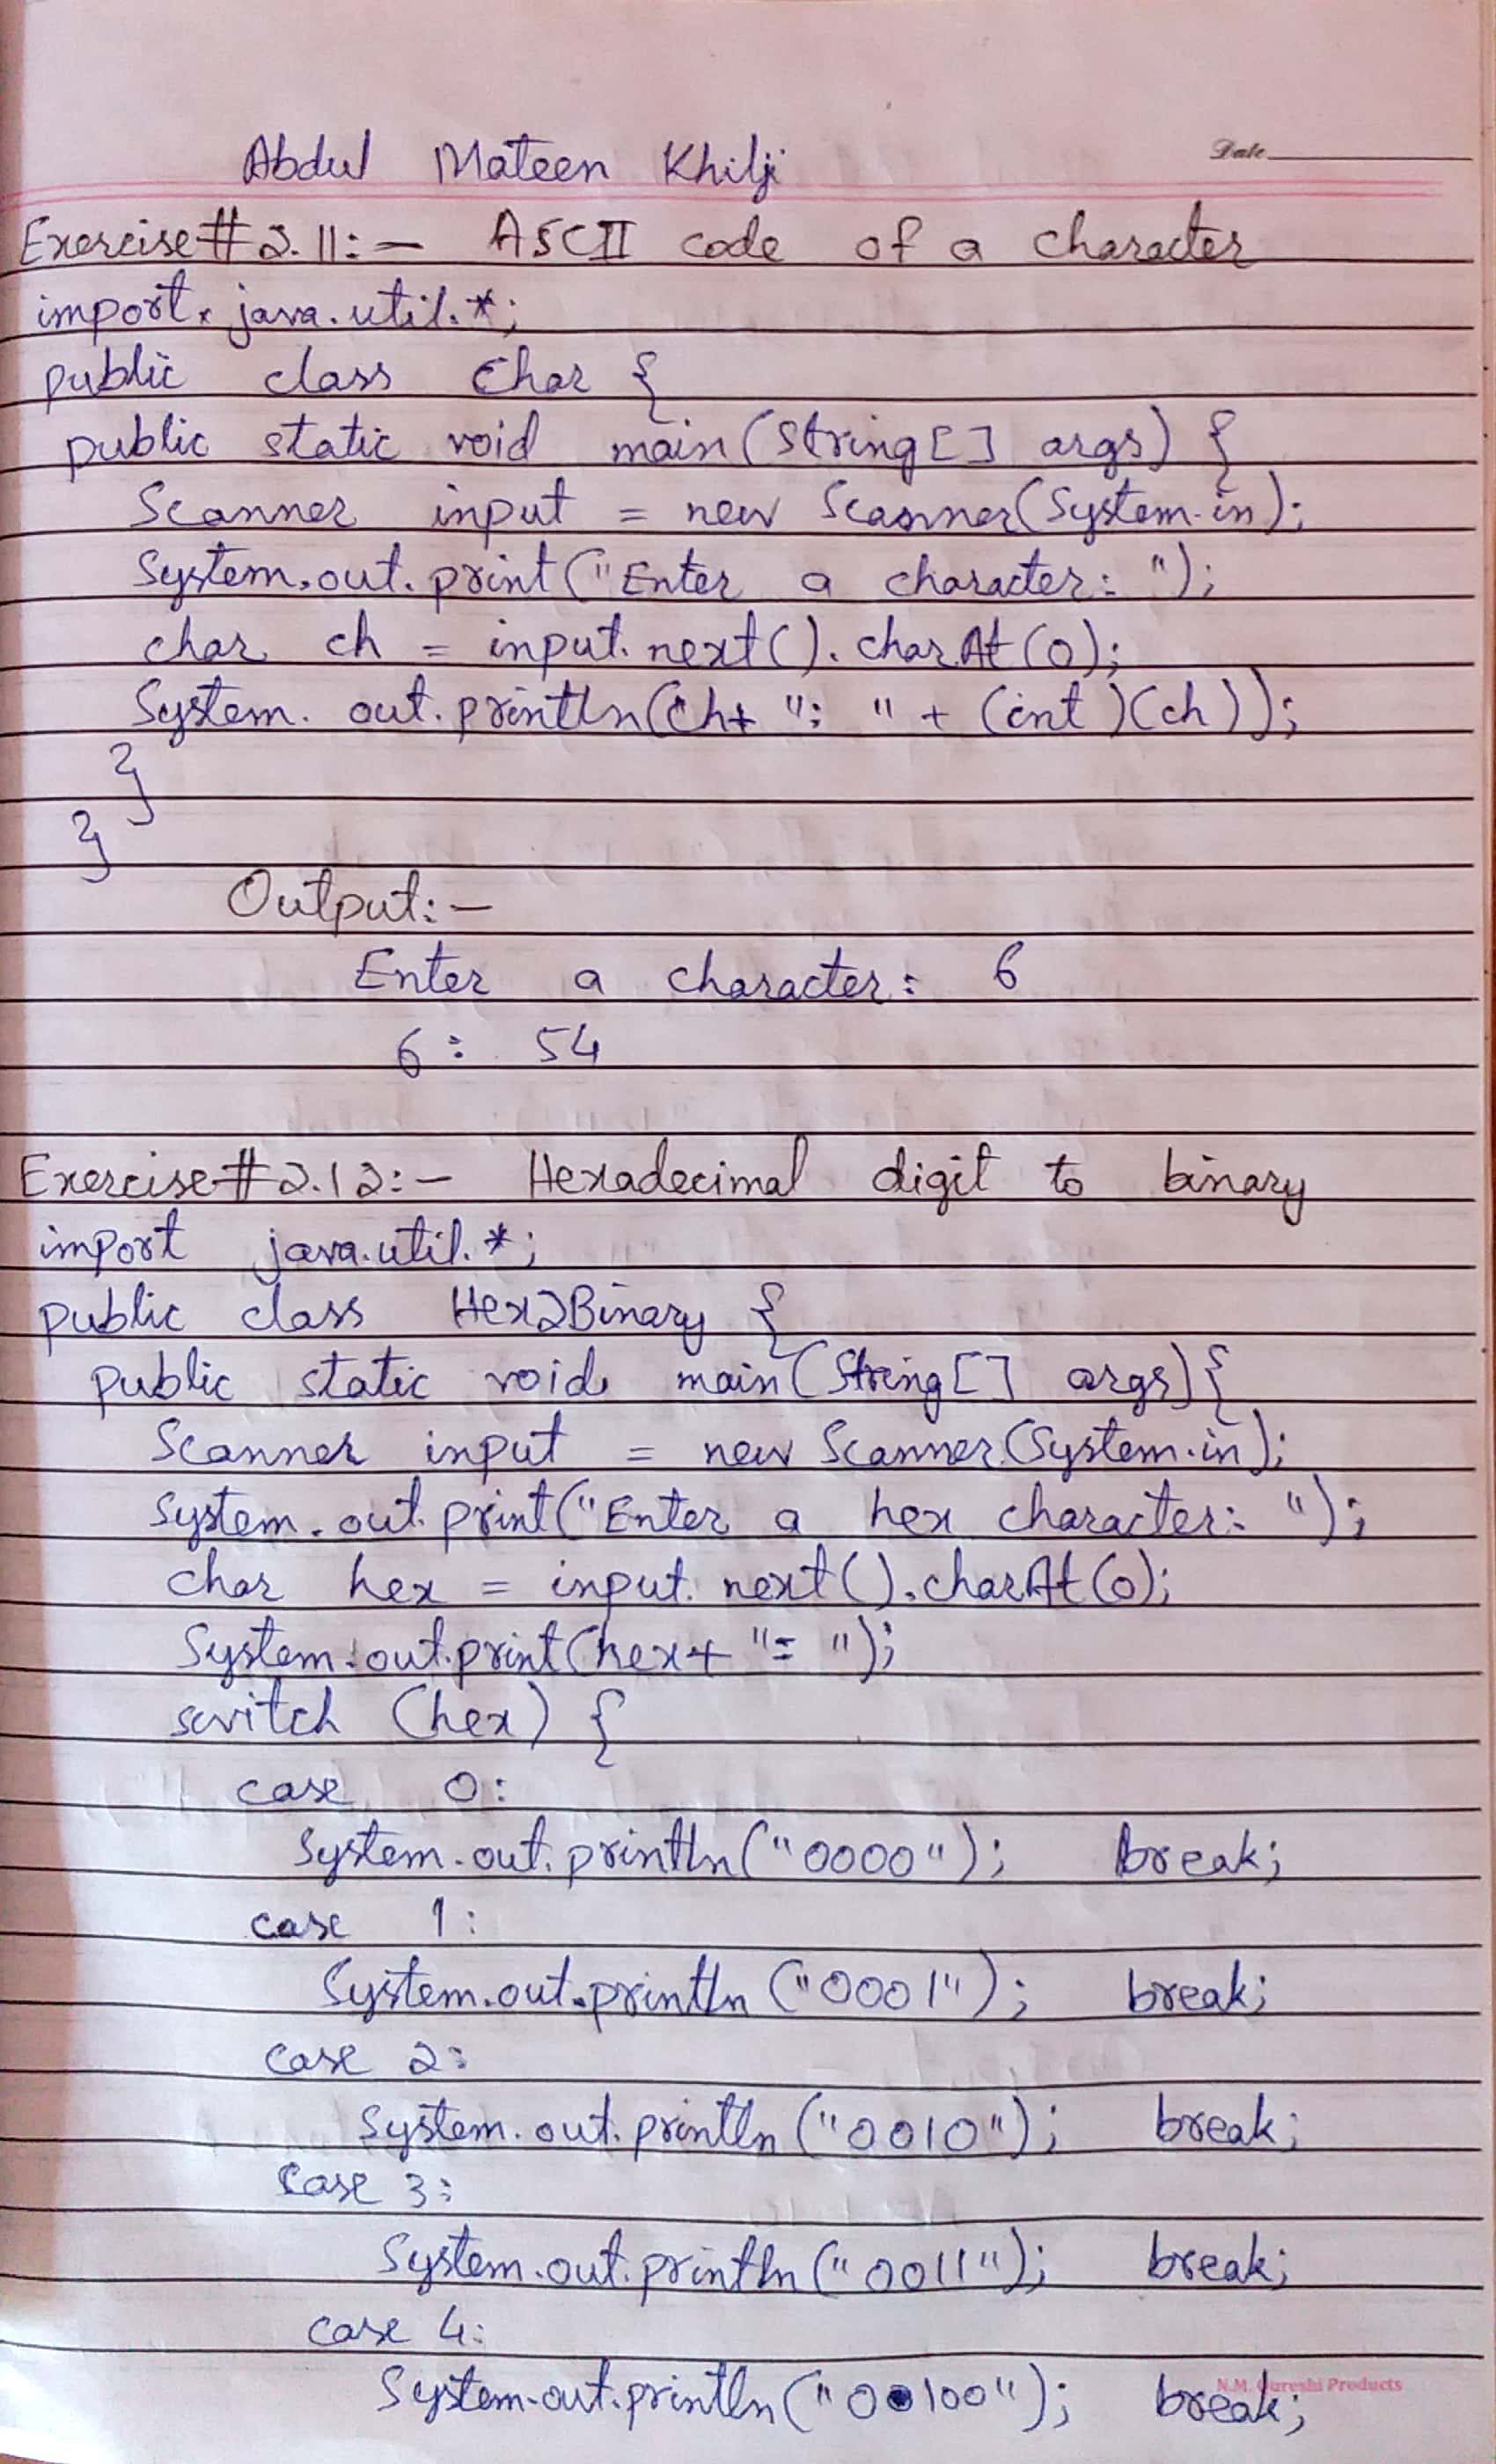 Abdul Mateen Khilji
Date
Exercise# 2.11:- ASCII code of a character
import java.util.*;
public class Char {
public static void main(String[] args) {
Scanner input = new Scanner(System.in);
System.out.print("Enter a character: ");
char ch = input.next().charAt(0);
System.out.println(ch+ ": " + (int)(ch));
}
}
Output:-
Enter a character: 6
6: 54
Exercise# 2.12:- Hexadecimal digit to binary
import java.util.*;
public class Hex2Binary {
public static void main(String[] args){
Scanner input = new Scanner(System.in);
System.out.print("Enter a hex character: ");
char hex = input.next().charAt(0);
System.out.print(hex+ "= ");
switch (hex) {
case 0:
System.out.println("0000"); break;
case 1:
System.out.println("0001"); break;
case 2:
System.out.println("0010"); break;
case 3:
System.out.println("0011"); break;
case 4:
System.out.println("00100"); break;
N.M. Qureshi Products